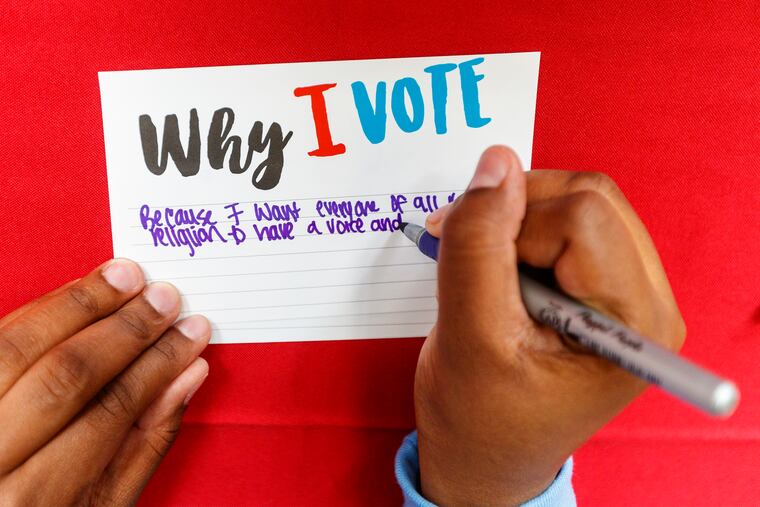 Why I VOTE
Because I want everyone of all
religion to have a vote and